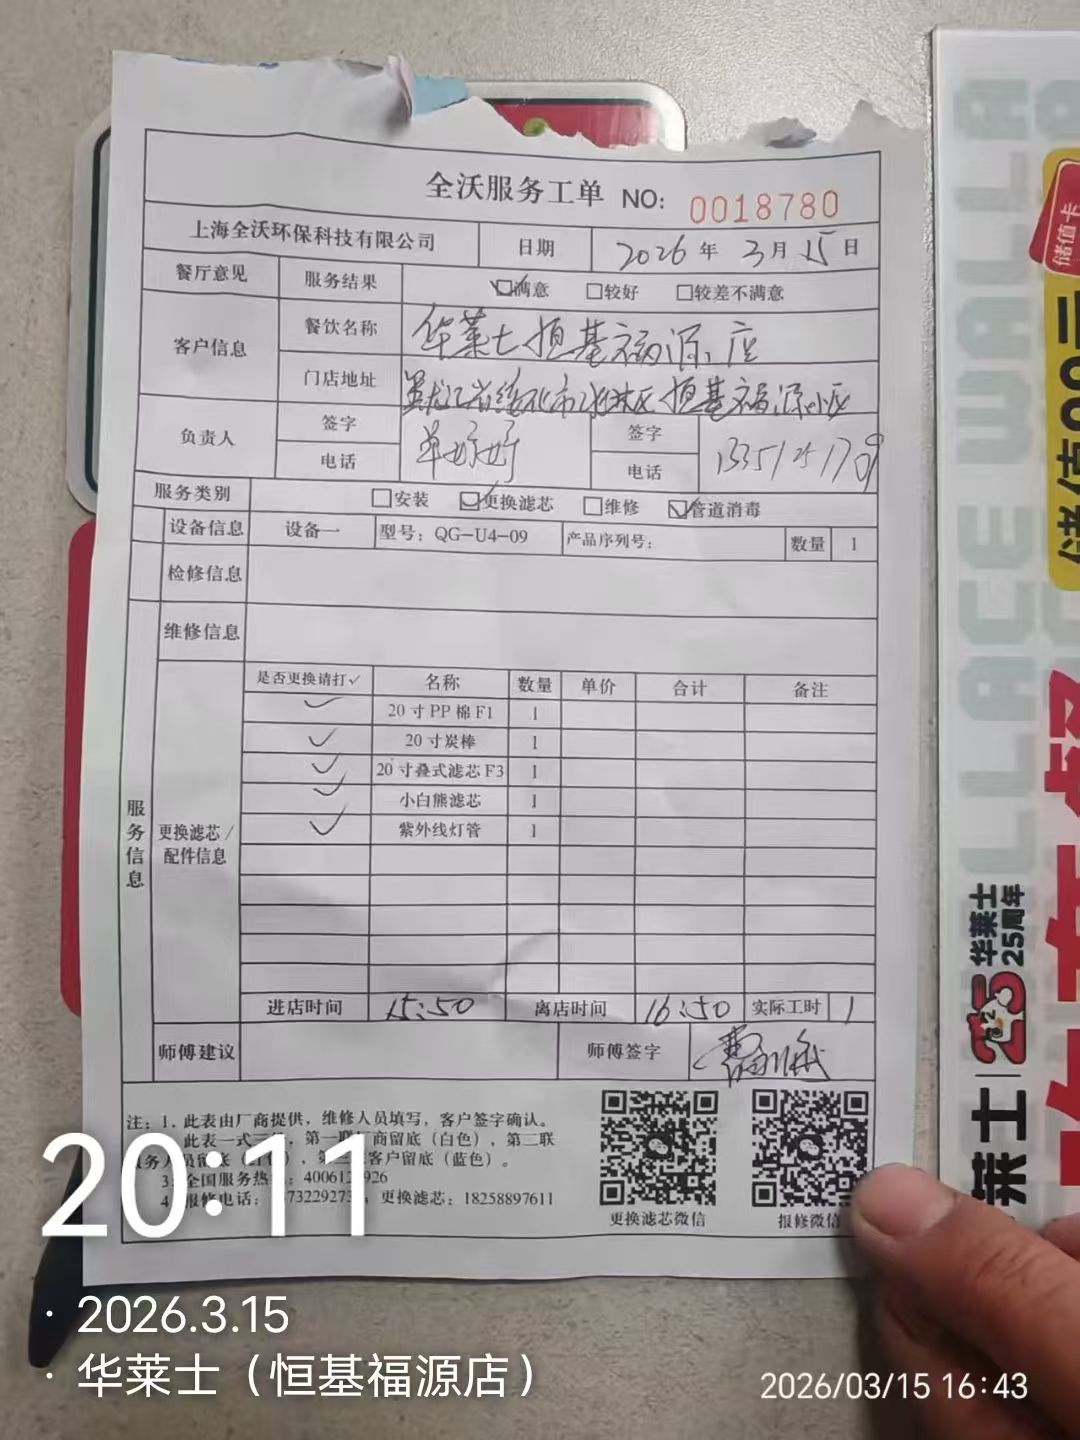 全沃服务工单 NO: 0018780
上海全沃环保科技有限公司 日期 2026年 3月 15日
餐厅意见 服务结果 ☑满意 □较好 □较差不满意
客户信息 餐饮名称 华莱士恒基福源店
门店地址 黑龙江省绥化市北林区恒基福源小区
负责人 签字 签字
电话 电话 13351251709
服务类别 □安装 ☑更换滤芯 □维修 ☑管道消毒
设备信息 设备一 型号：QG-U4-09 产品序列号： 数量 1
检修信息
维修信息
服务信息
更换滤芯/
配件信息
是否更换请打✓ 名称 数量 单价 合计 备注
✓ 20寸PP棉F1 1
✓ 20寸炭棒 1
✓ 20寸叠式滤芯F3 1
✓ 小白熊滤芯 1
✓ 紫外线灯管 1
进店时间 15:50 离店时间 16:50 实际工时 1
师傅建议 师傅签字
注：1. 此表由厂商提供，维修人员填写，客户签字确认。
此表一式三 ，第一联 商留底（白色），第二联
务人员留底（ 色），第三 客户留底（蓝色）。
3. 全国服务热 ：400612 926
4. 报修电话： 73229273 ，更换滤芯：18258897611
更换滤芯微信 报修微信
20:11
· 2026.3.15
· 华莱士（恒基福源店）
2026/03/15 16:43
LLACE WALLA
储值卡
华莱士
25周年
25
莱士